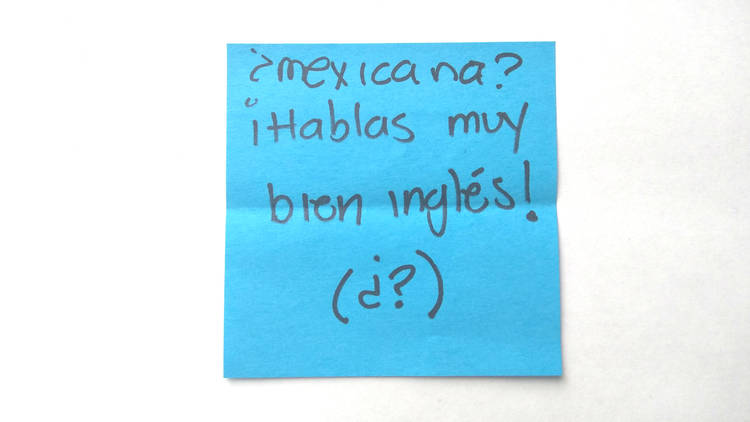 ¿mexicana?
¡Hablas muy
bien inglés!
(¿?)